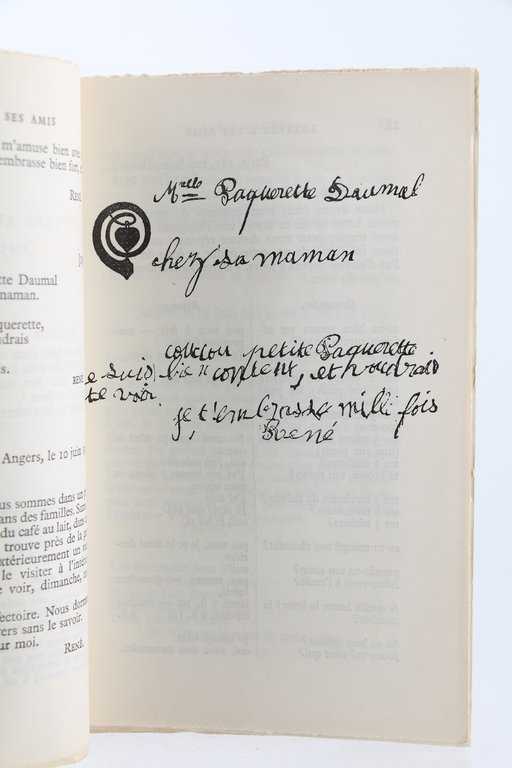 SES AMIS
m'amuse bien avec
embrasse bien fort,
René
tte Daumal
maman.
querette,
udrais
s.
RENÉ
Angers, le 10 juin
us sommes dans un
ans des familles.
du café au lait, dans
trouve près de la
xtérieurement un
le visiter à l'inté
e voir, dimanche,
fectoire. Nous dorm
vers sans le savoir.
ur moi.
RENÉ.
Melle Paquerette Daumal
chez sa maman
coucou petite Paquerette
e suis bien content, et voudrais
te voir
je t'embrasse milli fois
René